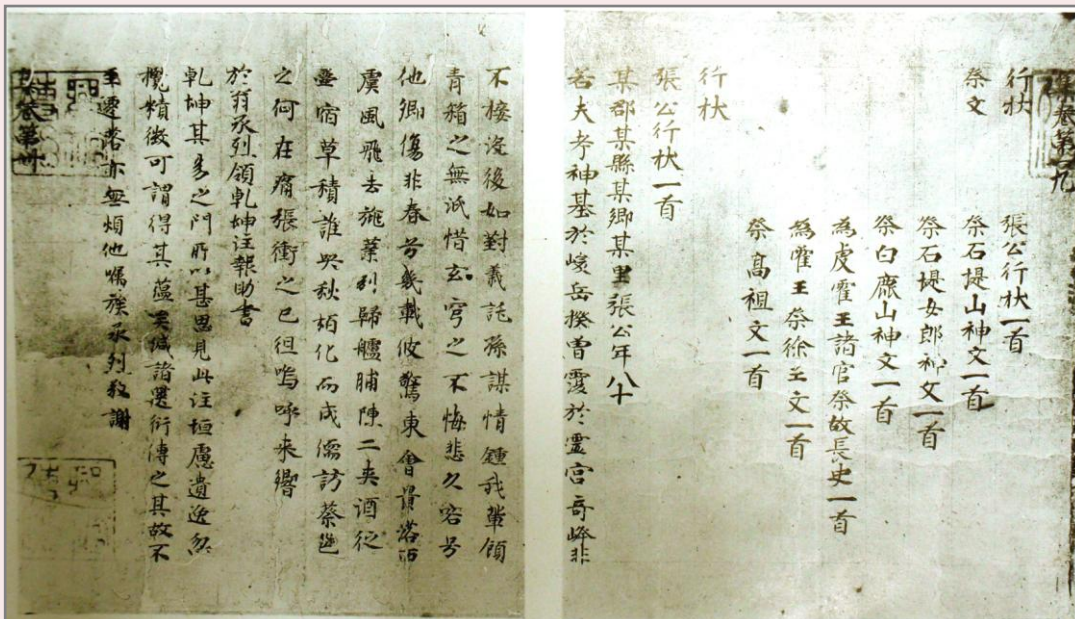 集卷第廿九
行狀 張公行狀一首
祭文 祭石堤山神文一首
祭石堤女郎神文一首
祭白鹿山神文一首
為虔霍王諸官祭故長史一首
為霍王祭徐王文一首
祭高祖文一首
行狀
張公行狀一首
某郡某縣某鄉某里張公年八十
若夫考神基於峻岳揆曾覆於靈宮奇峰非
不接沒後如對義託孫謀情鍾我輩顧
青箱之無泯惜玄穹之不悔悲久客兮
他鄉傷非春兮幾載彼驚東會賞洛西
虞風飛去旐葉引歸艫脯陳二夾酒從
壘宿草積誰哭秋栢化而成儒訪蔡邕
之何在痛張衡之已徂嗚呼来響
於翁承烈領乹坤注報助書
乹坤其易之門所以甚思見此注垣慮遺逸忽
攬精微可謂得其蘊奧緘諸篋衍傳之其故不
至遷落亦無煩他囑族承烈敬謝
集卷第卅